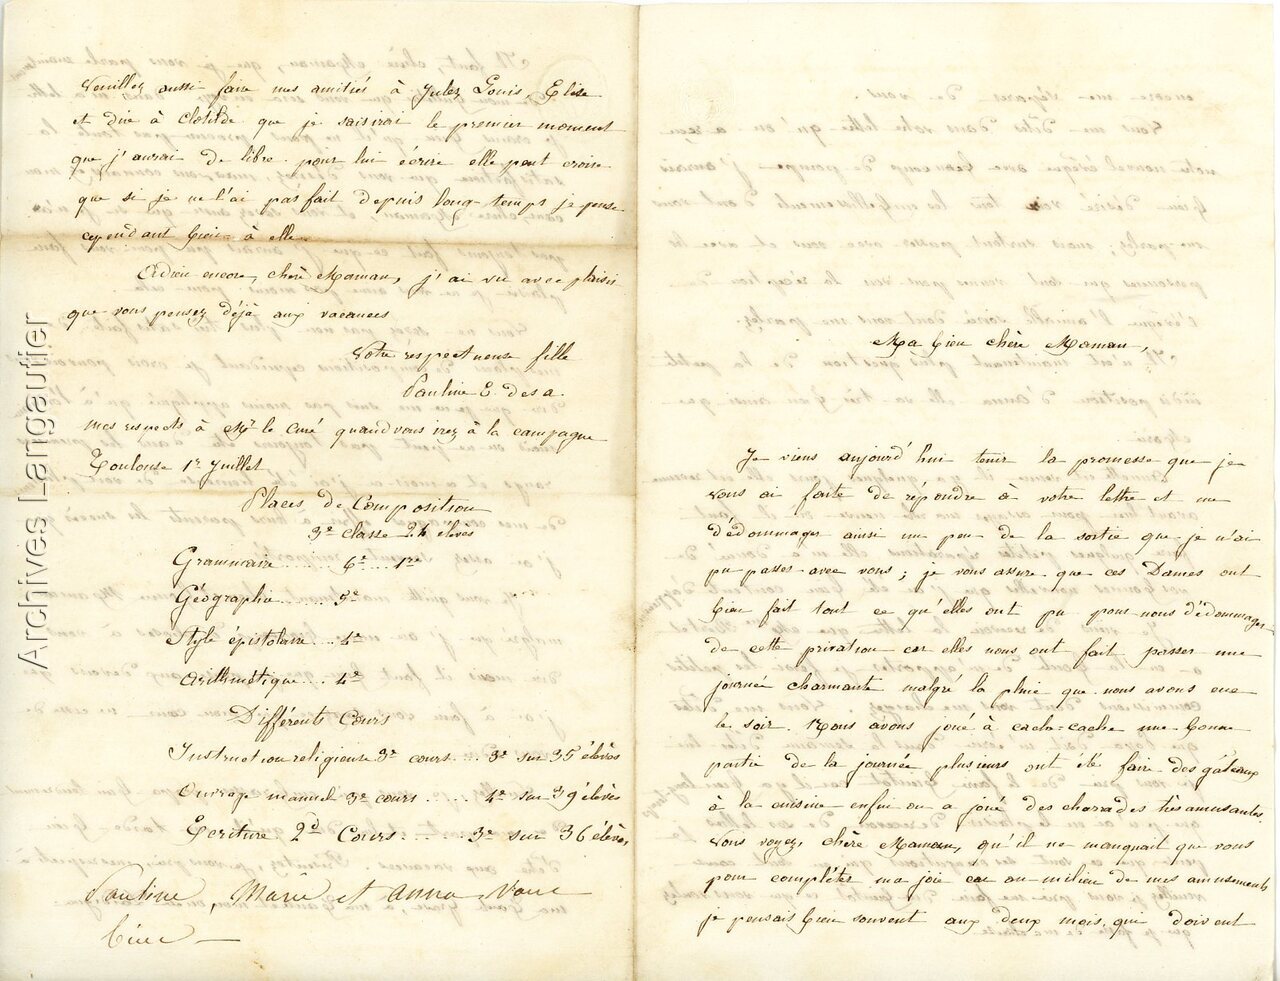 Ma bien chère Maman,
Je viens aujourd'hui tenir la promesse que je
vous ai faite de répondre à votre lettre et me
dédommager ainsi un peu de la sortie que je n'ai
pu passer avec vous ; je vous assure que ces Dames ont
bien fait tout ce qu'elles ont pu pour nous dédommager
de cette privation car elles nous ont fait passer une
journée charmante malgré la pluie que nous avons eue
le soir. Nous avons joué à cach-cache une bonne
partie de la journée plusieurs ont été faire des gâteaux
à la cuisine enfin on a joué des charrades très amusantes
Vous voyez, chère Maman, qu'il ne manquait que vous
pour compléter ma joie car au milieu de mes amusements
je pensais bien souvent aux deux mois, qui doivent
Veuillez aussi faire mes amitiés à Jules, Louis, Elise
et dire à Clotilde que je saisirai le premier moment
que j'aurai de libre pour lui écrire elle peut croire
que si je ne l'ai pas fait depuis long-temps je pense
cependant bien à elle.
Adieu encore, chère Maman, j'ai vu avec plaisir
que vous pensez déjà aux vacances
Votre respectueuse fille
Pauline E. des a.
mes respects à Mr le Curé quand vous irez à la campagne
Toulouse 1r Juillet
Places de Composition
3e classe 24 élèves
Grammaire ...... 6e ... 1re
Géographie ....... 5e
Style épistolaire ... 4e
Arithmétique ... 4e
Différents Cours
Instruction religieuse 3e cours ... 3e sur 35 élèves
Ouvrage manuel 3e cours ...... 4e sur 39 élèves
Ecriture 2d Cours ...... 3e sur 36 élèves
Pauline, Marie et Anna vont
bien
Archives Langautier